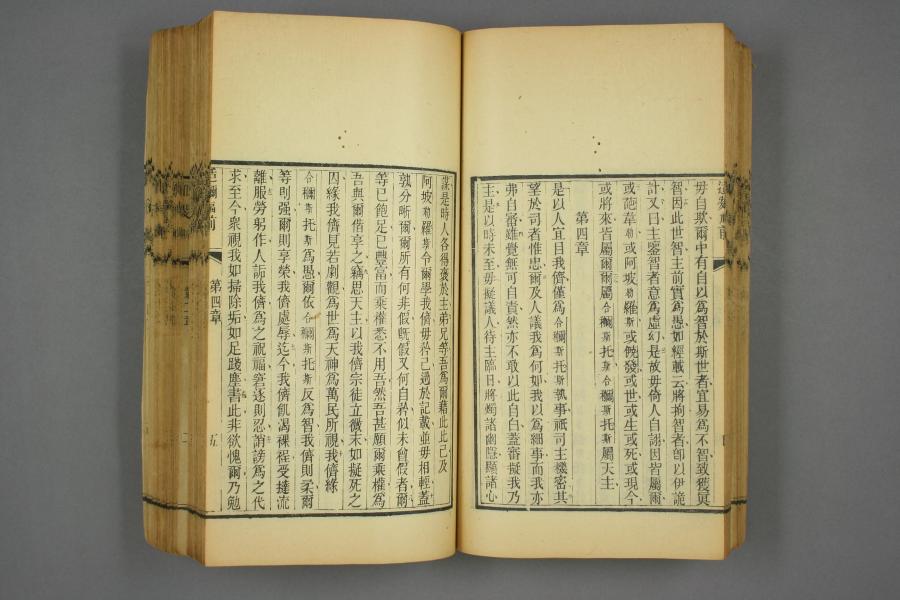 毋自欺爾中有自以爲智於斯世者宜易爲不智致獲眞
智因此世智主前實爲愚如經載云將拘智者卽以伊詭
計又曰主鑒智者意爲虛幻是故毋倚人自詡因皆屬爾
或葩 勒或阿坡 勒羅斯或 發或世或生或死或現今
或將來皆屬爾爾屬合 斯托斯合 斯托斯屬天主
第四章
是以人宜目我儕僅爲合 斯托斯執事祇司主機密其
望於司者惟忠爾及人議我爲何如我以爲細事而我亦
弗自審雖覺無可自責然亦不敢以此自白蓋審擬我乃
主是以時未至毋擬議人待主臨日將燭諸幽隱顯諸心
謀是時人各得褒於主弟兄等吾爲爾藉此比己及
阿坡 勒羅斯令爾學我儕毋矜己過於記載並毋相輕蓋
孰分晰爾爾所有何非假旣假又何自矜似未曾假者爾
等已飽足已豐富而乘權悉不用吾然吾甚願爾乘權爲
吾與爾偕享之竊思天主以我儕宗徒立微末如擬死之
囚緣我儕見若劇觀爲世爲天神爲萬民所視我儕緣
合 斯托斯爲愚爾依合 斯托斯反爲智我儕則柔爾
等則强爾則享榮我儕處辱迄今我儕飢渴裸裎受撻流
離服勞躬作人詬我儕爲之祝福窘逐則忍誚謗爲之代
求至今衆視我如掃除垢如足踐塵書此非欲愧爾乃勉
第四章
五